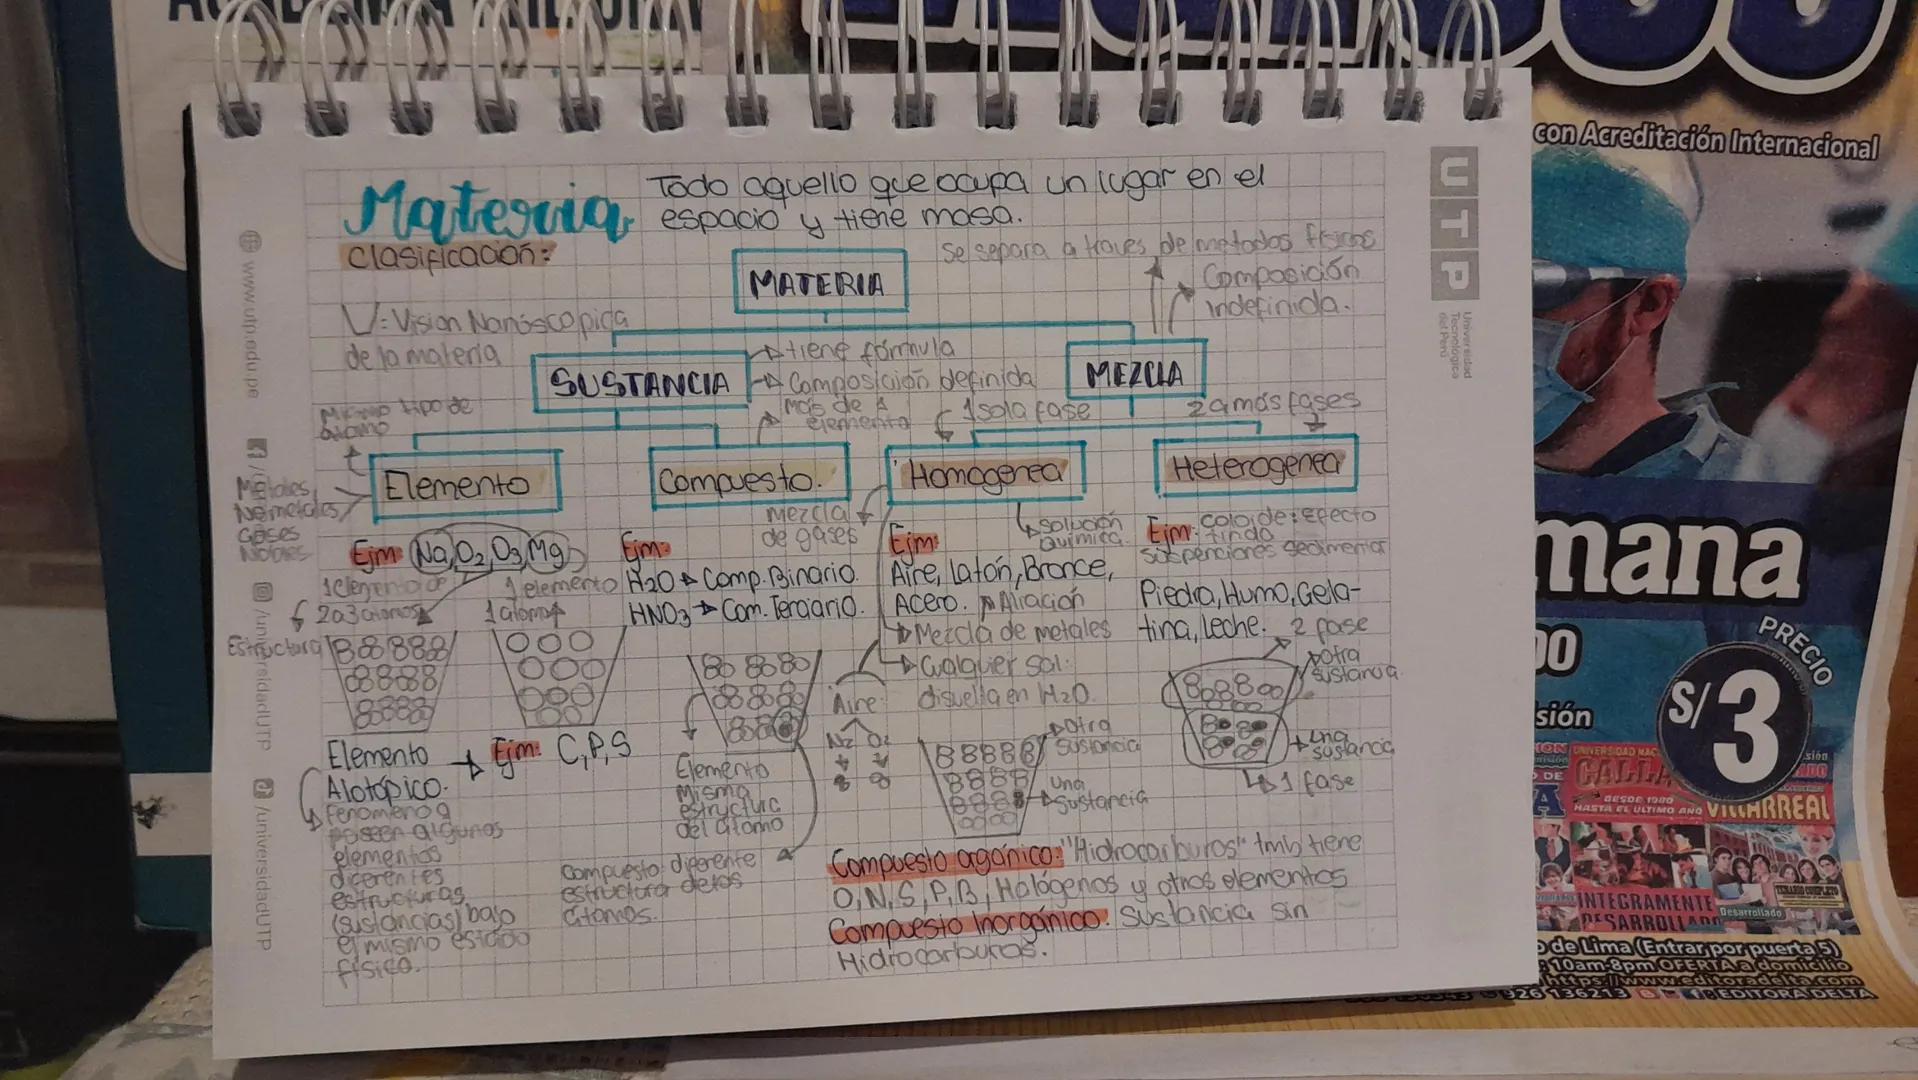 con Acreditación Internacional
UTP
Universidad
Tecnológica
del Perú
www.utp.edu.pe
/universidadUTP
/universidadUTP
Materia
Todo aquello que ocupa un lugar en el
espacio y tiene masa.
Clasificación:
Se separa a traves de metodos fisicos
Composición
indefinida.
MATERIA
V=Vision Nanoscopica
de la materia
SUSTANCIA
tiene fórmula
Composición definida
MEZCLA
Mismo tipo de
átomo
Más de 1
elemento
1 sola fase
2 a más fases
Elemento
Compuesto.
Homogenea
Heterogenea
Metales
No metales
Gases
Nobles
mezcla
de gases
solución
química
Ejm: Na, O2, O3, Mg
1 elemento de
2 a 3 atomos
1 elemento
1 atomo
Ejm:
H2O Comp. Binario.
HNO3 Com. Terciario.
Ejm:
Aire, Latón, Bronce,
Acero. Aliación
Mezcla de metales
Cualquier sol.
disuelta en H2O.
Ejm: coloide: efecto
tindo
suspenciones sedimentar
Piedra, Humo, Gela-
tina, Leche.
2 fase
otra
sustancia
una
sustancia
1 fase
Estructura
Aire
N2 O2
otra
sustancia
una
sustancia
Elemento
Alotópico.
Ejm: C, P, S
Fenomeno q
poseen algunos
elementos
diferentes
estructuras
(sustancias) bajo
el mismo estado
físico.
Elemento
Misma
estructura
del átomo
Compuesto: diferente
estructura de los
átomos.
Compuesto orgánico: "Hidrocarburos" tmb tiene
O, N, S, P, B, Halógenos y otros elementos
Compuesto Inorgánico: Sustancia sin
Hidrocarburos.
mana
PRECIO
S/3
CALLA
DESDE 1980
HASTA EL ULTIMO AÑO
VILLARREAL
INTEGRAMENTE
DESARROLLADO
Desarrollado
de Lima (Entrar por puerta 5)
10am-8pm OFERTA a domicilio
https://www.editoradelta.com
926 136213
EDITORA DELTA